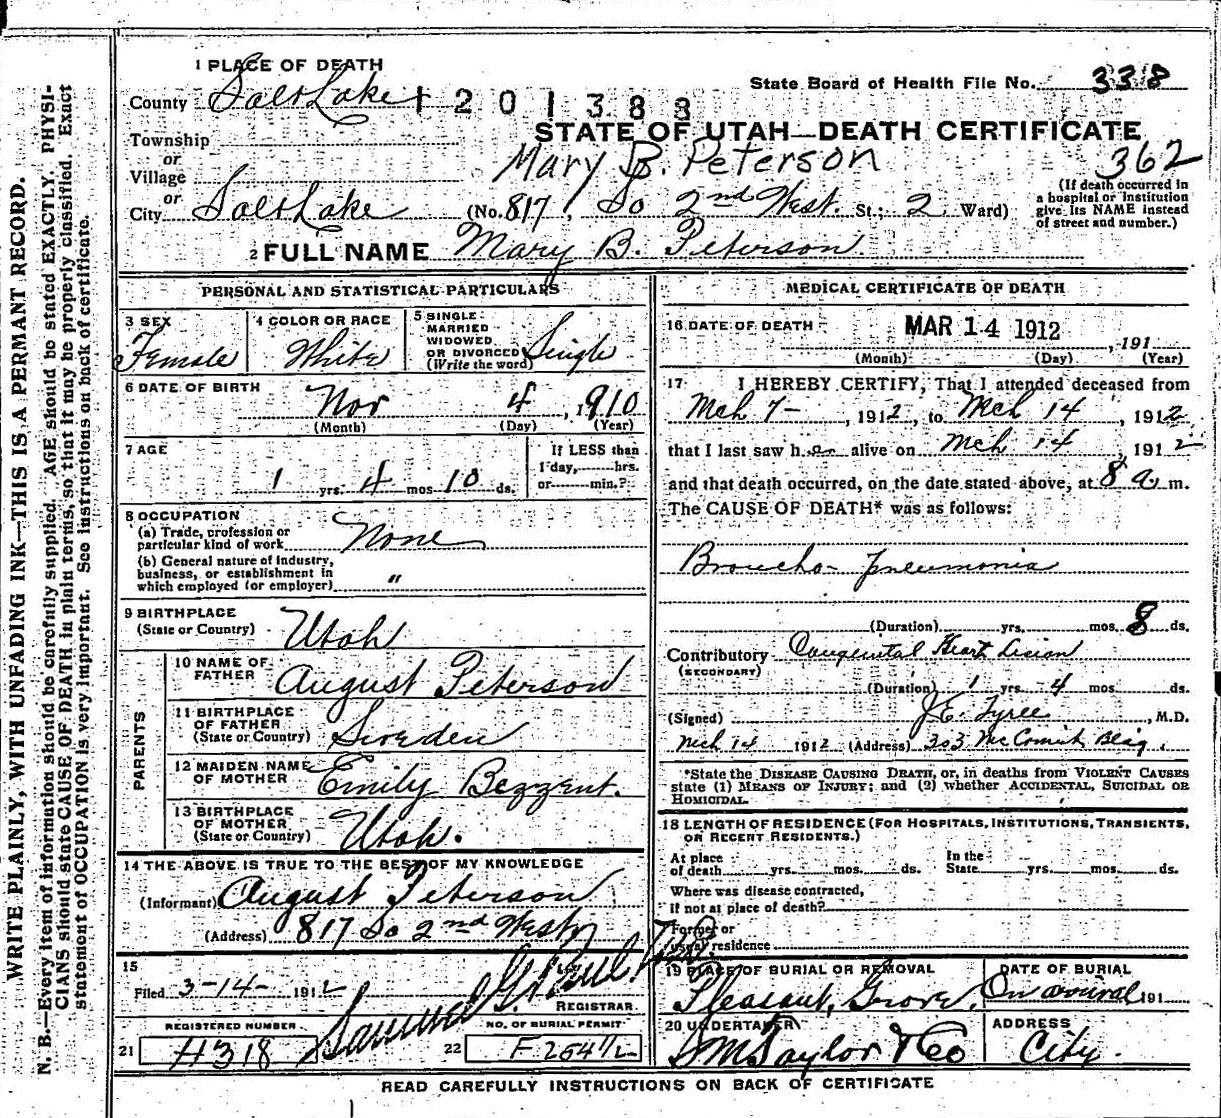 WRITE PLAINLY, WITH UNFADING INK—THIS IS A PERMANT RECORD.
N. B.—Every item of information should be carefully supplied. AGE should be stated EXACTLY. PHYSI-
CIANS should state CAUSE OF DEATH in plain terms, so that it may be properly classified. Exact
statement of OCCUPATION is very important. See instructions on back of certificate.
1 PLACE OF DEATH
State Board of Health File No. 338
County Salt Lake 1201388
STATE OF UTAH—DEATH CERTIFICATE
Township
or
Mary B. Peterson 362
Village
or
City Salt Lake (No. 817, So 2nd West. St.; 2 Ward)
(If death occurred in
a hospital or institution
give its NAME instead
of street and number.)
2 FULL NAME Mary B. Peterson
PERSONAL AND STATISTICAL PARTICULARS
3 SEX
Female
4 COLOR OR RACE
White
5 SINGLE
MARRIED
WIDOWED
OR DIVORCED
(Write the word) Single
6 DATE OF BIRTH
Nov 4, 1910
(Month) (Day) (Year)
7 AGE
1 yrs. 4 mos 10 ds.
If LESS than
1 day, hrs.
or min.?
8 OCCUPATION
(a) Trade, profession or
particular kind of work None
(b) General nature of industry,
business, or establishment in
which employed (or employer) "
9 BIRTHPLACE
(State or Country) Utah
PARENTS
10 NAME OF
FATHER August Peterson
11 BIRTHPLACE
OF FATHER
(State or Country) Sweden
12 MAIDEN NAME
OF MOTHER Emily Bezzent.
13 BIRTHPLACE
OF MOTHER
(State or Country) Utah.
14 THE ABOVE IS TRUE TO THE BEST OF MY KNOWLEDGE
(Informant) August Peterson
(Address) 817 So 2nd West
15
Filed 3-14- 1912
Samuel G. Paul
REGISTRAR
REGISTERED NUMBER
21 H318
NO. OF BURIAL PERMIT
22 F 264 1/2
MEDICAL CERTIFICATE OF DEATH
16 DATE OF DEATH MAR 14 1912, 191
(Month) (Day) (Year)
17 I HEREBY CERTIFY, That I attended deceased from
Mch 7-, 1912, to Mch 14, 1912
that I last saw her alive on Mch 14 1912
and that death occurred, on the date stated above, at 8 a m.
The CAUSE OF DEATH* was as follows:
Broncho-pneumonia
(Duration) yrs. mos. 8 ds.
Contributory Congenital Heart Lision
(SECONDARY)
(Duration) 1 yrs. 4 mos. ds.
(Signed) J.E. Tyree, M.D.
Mch 14 1912 (Address) 303 McCornick Bldg.
*State the DISEASE CAUSING DEATH, or, in deaths from VIOLENT CAUSES
state (1) MEANS OF INJURY; and (2) whether ACCIDENTAL, SUICIDAL OR
HOMICIDAL.
18 LENGTH OF RESIDENCE (FOR HOSPITALS, INSTITUTIONS, TRANSIENTS,
OR RECENT RESIDENTS.)
At place
of death yrs. mos. ds.
In the
State yrs. mos. ds.
Where was disease contracted,
if not at place of death?
Former or
usual residence
19 PLACE OF BURIAL OR REMOVAL
Pleasant, Grove,
DATE OF BURIAL
On arrival 191
20 UNDERTAKER
S M Taylor & Co
ADDRESS
City.
READ CAREFULLY INSTRUCTIONS ON BACK OF CERTIFICATE